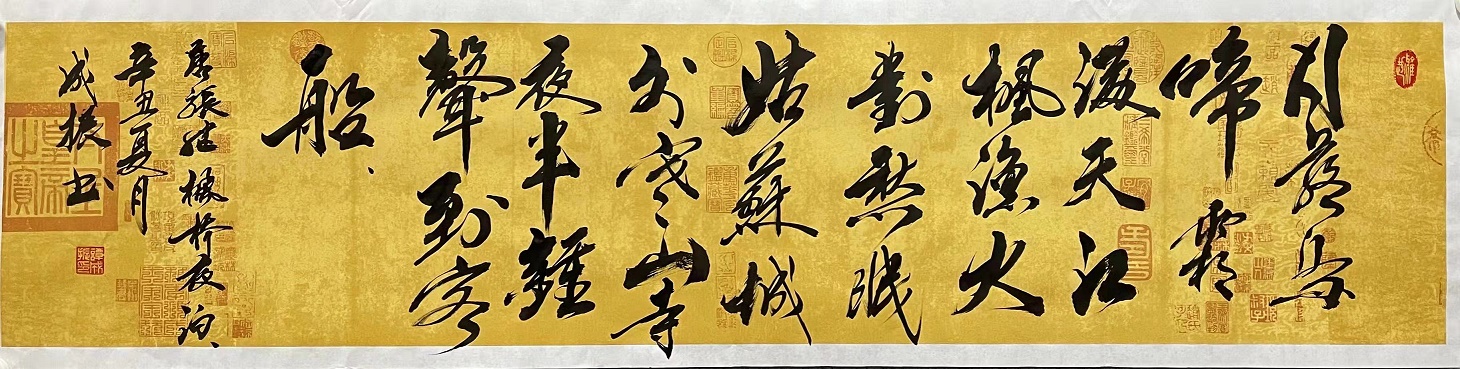 月落烏
啼霜
滿天江
楓漁火
對愁眠
姑蘇城
外寒山寺
夜半鐘
聲到客
船
唐張继楓桥夜泊
辛丑夏月
成振书